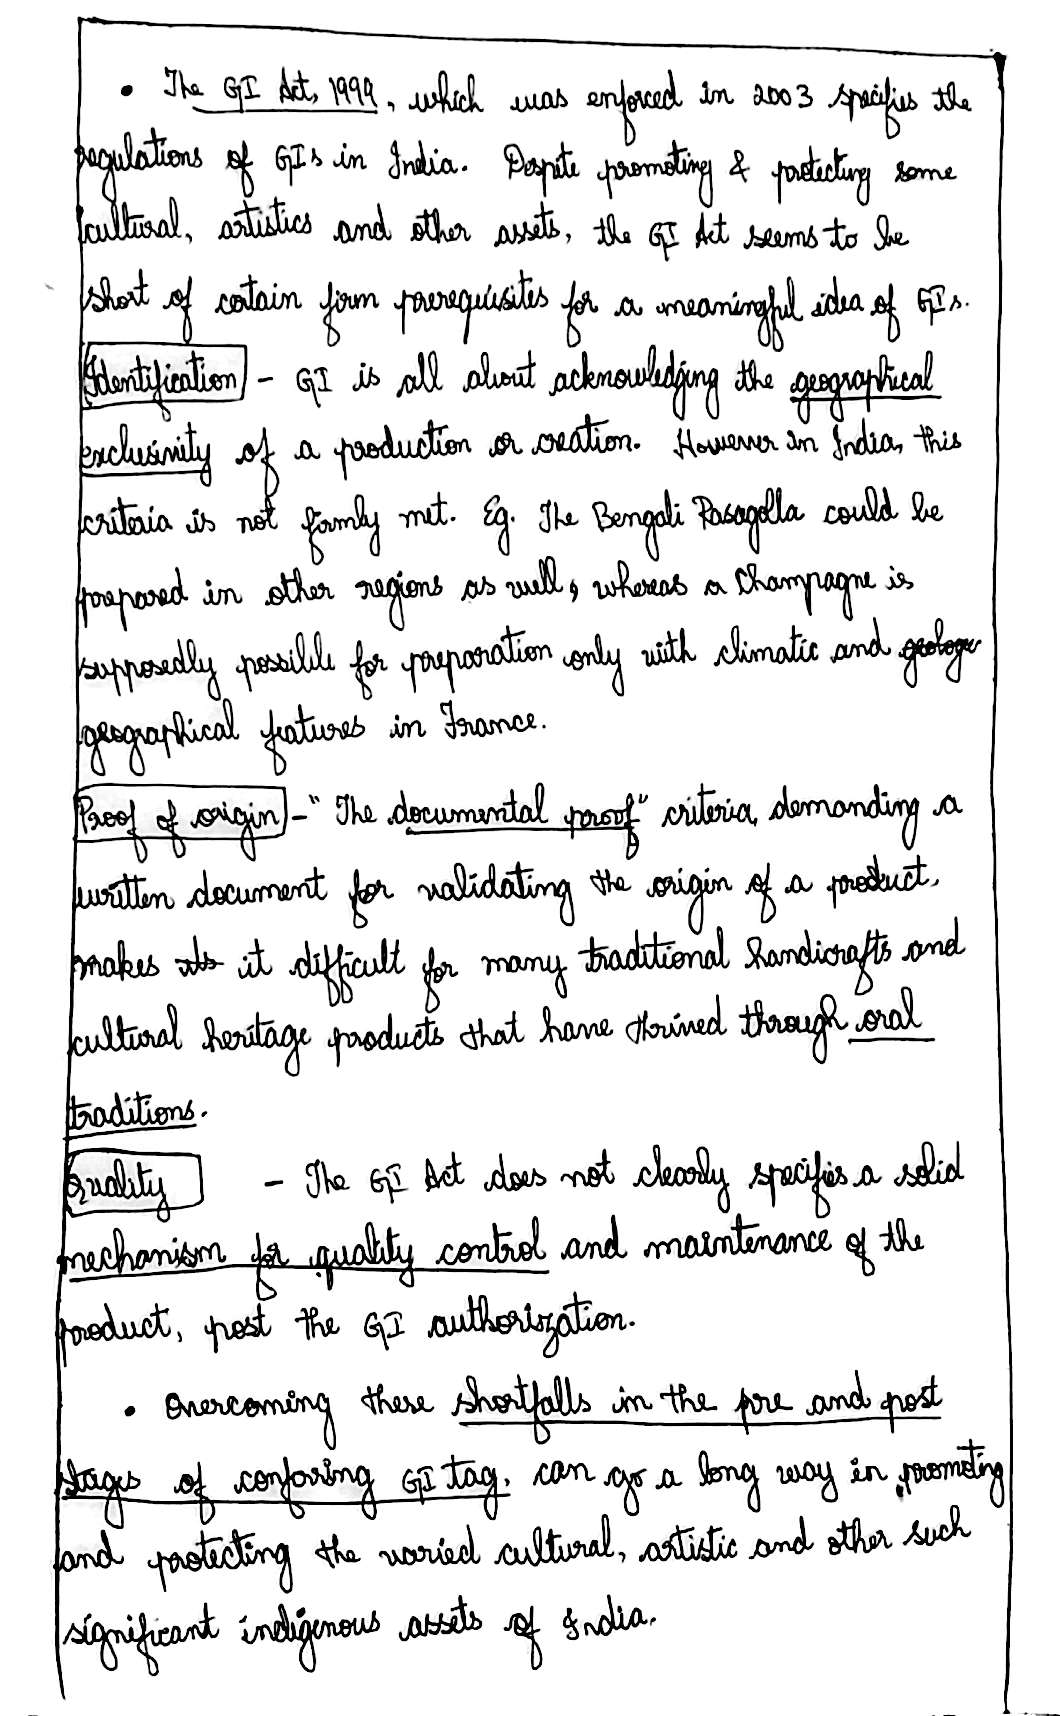 • The GI Act, 1999, which was enforced in 2003 specifies the
regulations of GIs in India. Despite promoting & protecting some
cultural, artistics and other assets, the GI Act seems to be
short of certain firm prerequisites for a meaningful idea of GIs.
Identification - GI is all about acknowledging the geographical
exclusivity of a production or creation. However in India, this
criteria is not firmly met. Eg. The Bengali Rasagolla could be
prepared in other regions as well, whereas a Champagne is
supposedly possible for preparation only with climatic and geologe
geographical features in France.
Proof of origin - "The documental proof" criteria, demanding a
written document for validating the origin of a product,
makes its it difficult for many traditional handicrafts and
cultural heritage products that have thrived through oral
traditions.
Quality - The GI Act does not clearly specifies a solid
mechanism for quality control and maintenance of the
product, post the GI authorization.
• Overcoming these shortfalls in the pre and post
stages of conferring GI tag, can go a long way in promoting
and protecting the varied cultural, artistic and other such
significant indigenous assets of India.